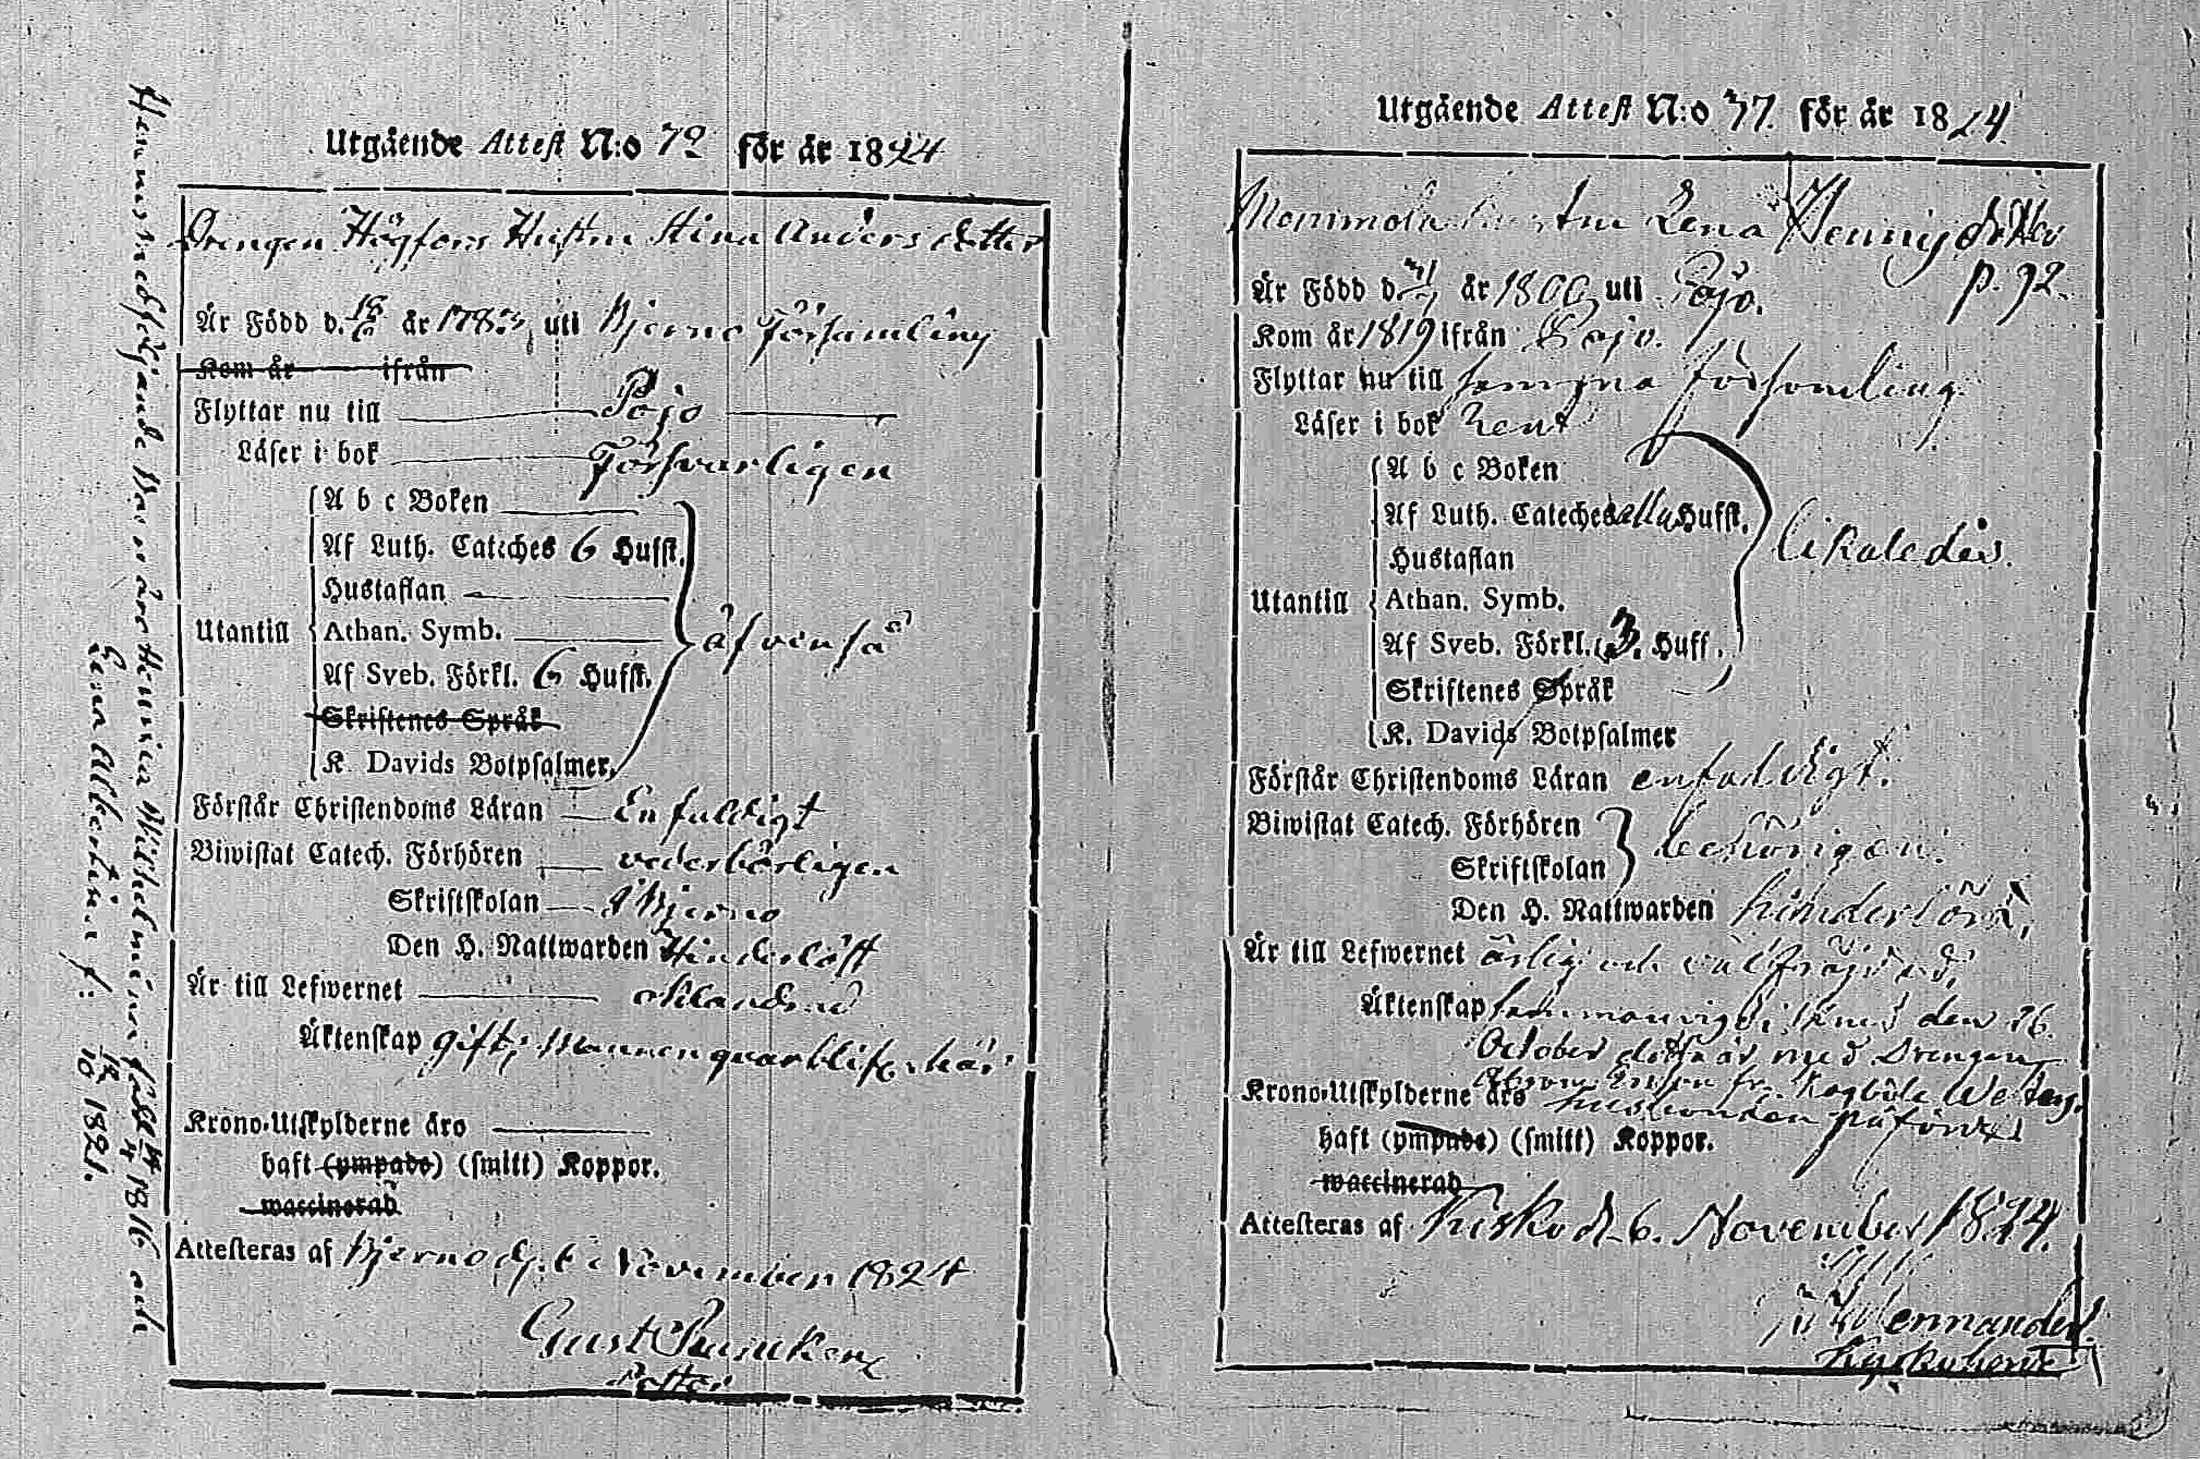 Utgående Attest N:o 72 för år 1824
Drengen Högfors Hustru Stina Anders dotter
Är Född d. 18/6 år 178 uti Bjerno Församling
Kom år ifrån
Flyttar nu till Pojo
Läser i bok Försvarligen
A b c Boken
Af Luth. Catches 6 Hufst.
Hustaflan
Utantill Athan. Symb. äfvenså
Af Sveb. Förkl. 6 Hufst.
Skriftenes Språk
K. Davids Botpsalmer,
Förstår Christendoms Läran Enfaldigt
Biwistat Catech. Förhören vederbörligen
Skriftskolan i Bjerno
Den H. Nattwarden Hinderlöst
Är till Lefwernet oklandrad
Äktenskap gift, Mannen quarblifer här
Krono-Utskylderne äro
haft (ympade) (smitt) Koppor.
waccinerad
Attesteras af Bjerno d. 6 November 1824
Gust
Hennes medföljande Henrica Wilhelmina född 1816 och
Lena Albertina f: 10 1821.
Utgående Attest N:o 77. för år 1824.
Lena Hennigsdotter
p. 92.
Är Född d. år 1800 uti Pojo.
Kom år 1819 ifrån Pojo.
Flyttar nu till samma församling.
Läser i bok Rent
A b c Boken
Af Luth. Catches alla Hufst.
Hustaflan likaledes.
Utantill Athan. Symb.
Af Sveb. Förkl. 3. Huff.
Skriftenes Språk
K. Davids Botpsalmer
Förstår Christendoms Läran enfaldigt.
Biwistat Catech. Förhören
Skriftskolan behörigen.
Den H. Nattwarden hinderlöst,
Är till Lefwernet ärlig och välfrejdad,
Äktenskap sammanvigdt den 26.
October detta år med Drengen
Krono-Utskylderne äro husbonden påförde
haft (ympade) (smitt) Koppor.
waccinerad
Attesteras af Kisko d. 6. November 1824.
Wennander.
Kyrkoherde